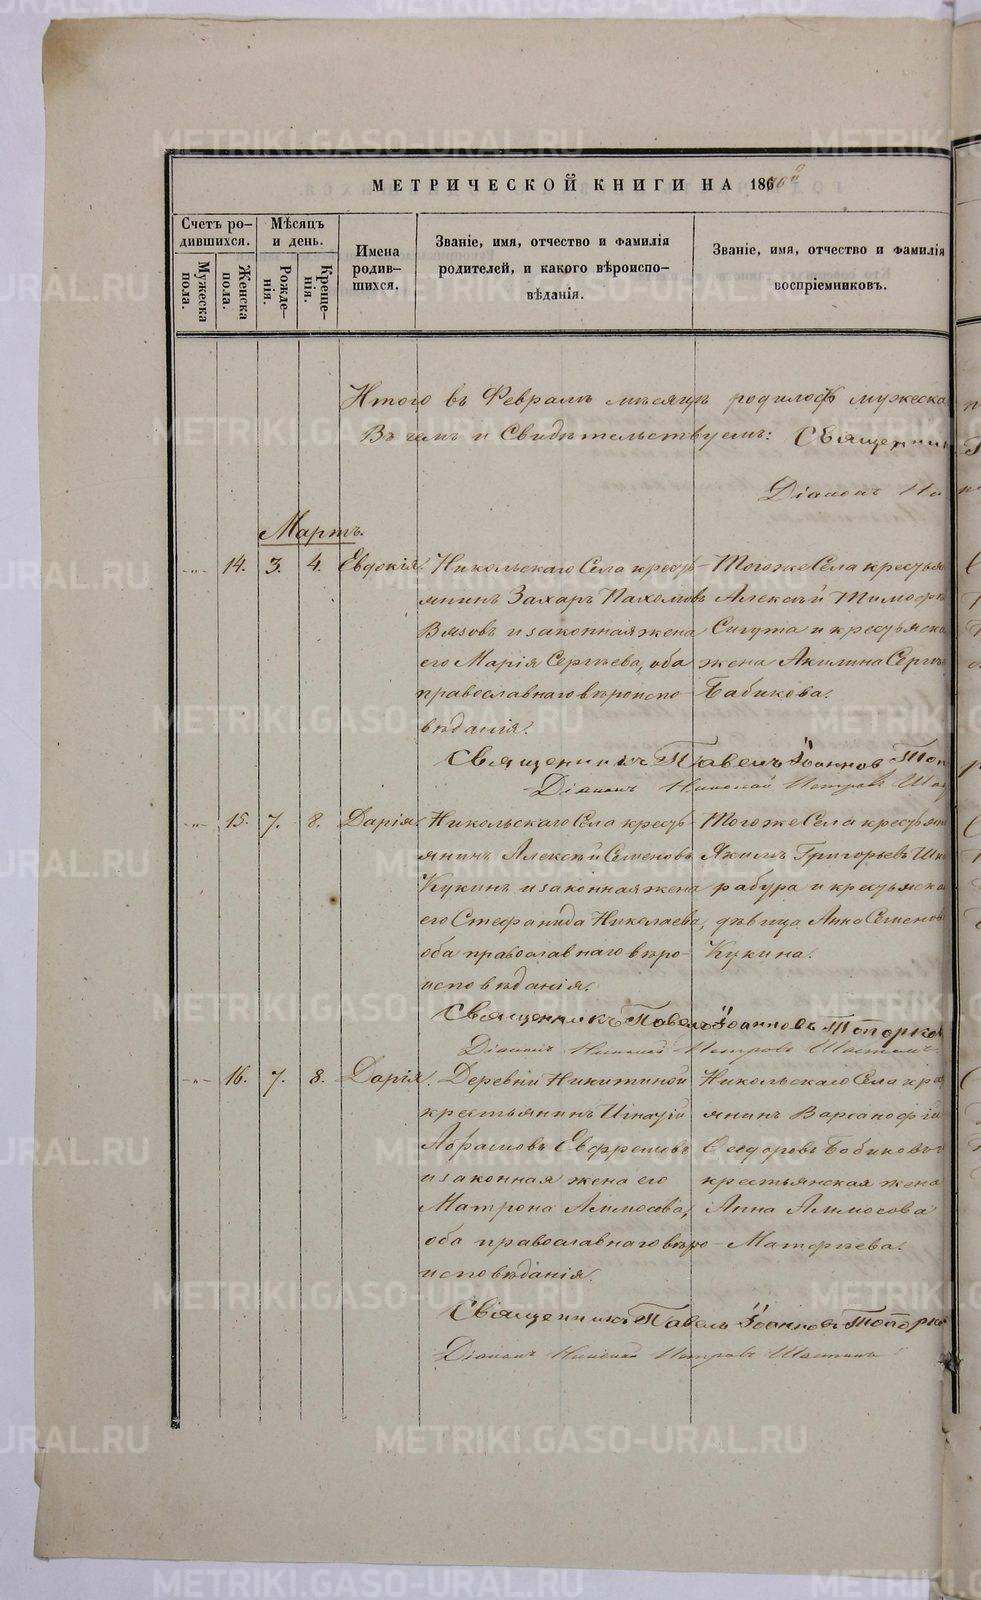 МЕТРИЧЕСКОЙ КНИГИ НА 1860й
Счетъ ро-
дившихся.
Мѣсяцъ
и день.
Мужеска
пола.
Женска
пола.
Рожде-
нія.
Креще-
нія.
Имена
родив-
шихся.
Званіе, имя, отчество и фамилія
родителей, и какого вѣроиспо-
вѣданія.
Званіе, имя, отчество и фамилія
воспріемниковъ.
Итого въ Февралѣ мѣсяцѣ родилось мужеска
Въ чемъ и Свидѣтельствуемъ: Священник
Діаконъ
Мартъ.
14. 3. 4. Евдокія.
Никольскаго Села кресть-
янинъ Захаръ Пахомовъ
Вязовъ и законная жена
его Марія Сергѣева, оба
православнаго вѣроиспо-
вѣданія.
Тогоже Села крестья
Алексѣй Тимофѣ
Сигута и крестьянска
жена Акилина Сергѣ
Бабикова.
Священникъ Павелъ Іоанновъ Топ
Діаконъ Николай Петровъ
15. 7. 8. Дарія.
Никольскаго Села кресть-
янинъ Алексѣй Семеновъ
Кукинъ и законная жена
его Стефанида Николаева,
оба православнаго вѣро-
исповѣданія.
Тогоже Села крестьян
Якимъ Григорьевъ Ши
рабура и крестьянска
дѣвица Анна Семенов
Кукина.
Священникъ Павелъ Іоанновъ Топорко
Діаконъ Николай Петровъ
16. 7. 8. Дарія.
Деревни Никитиной
крестьянинъ Игнатій
Абрамовъ Евфремовъ
и законная жена его
Матрона Аммосова,
оба православнаго вѣро-
исповѣданія.
Никольскаго Села крес
янинъ Варсанофій
Ѳедоровъ Бабиковъ и
крестьянская жена
Анна Аммосова
Матфѣева.
Священникъ Павелъ Іоанновъ Топорко
Діаконъ Николай Петровъ
METRIKI.GASO-URAL.RU